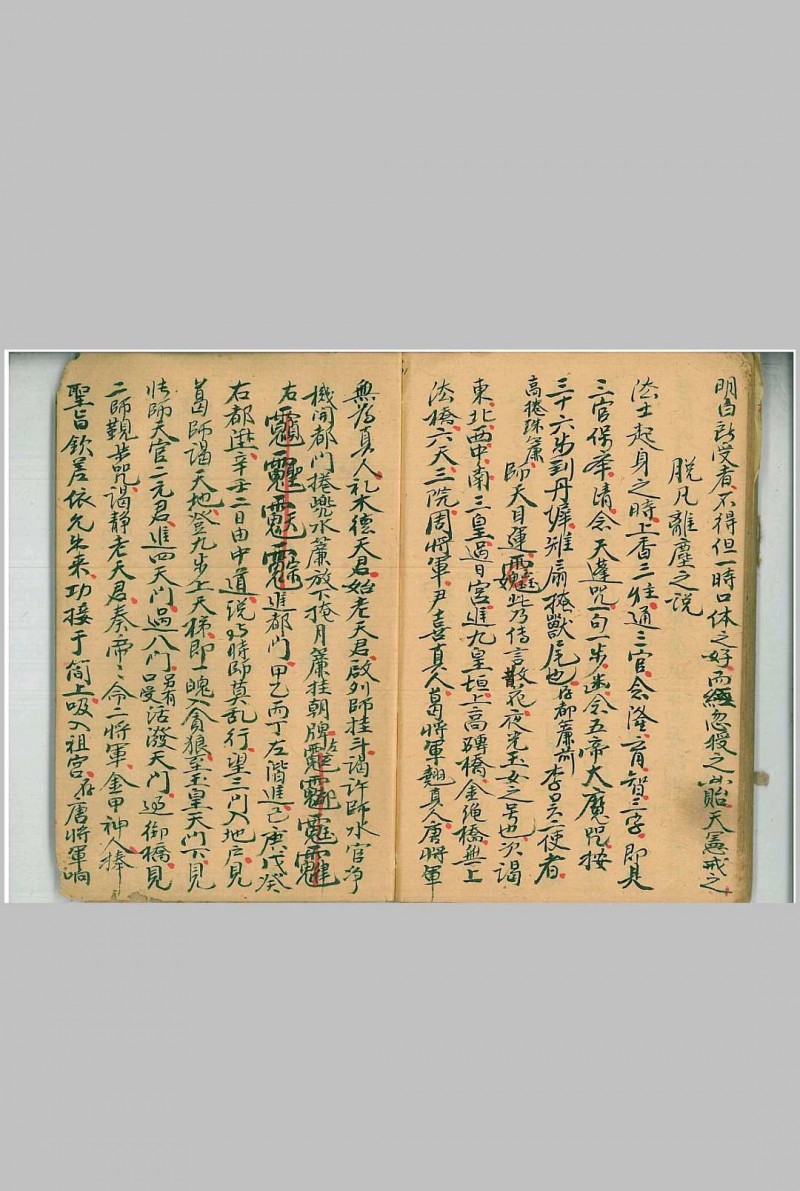 明白訢受者不得但一時口体之好而忽授之以貽天憲戒之
脱凡離塵之説
法士起身之時上香三炷通三官念洚育智三字即是
三官保奉清念天蓬咒一句一步幽念五帝大魔咒按
三十六步到丹墀雉扇掩獸尾也在都簾前李吴二使者
高捲珠簾師天目運此乃傳言散花夜光玉女之号也次謁
東北西中南三皇過日宮進九皇垣上高磚橋金絶橋無上
法橋六天三院周將軍尹喜真人葛將軍翘真人唐將軍
無為真人礼木德天君始老天君啟列師挂斗謁許師水官净
機開都門捲兠水簾放下掩月簾挂朝牌左
右進都門甲乙丙丁左階進己庚戊癸
右都進辛壬二日由中道説此時師莫乱行望三門入地户見
葛師謁天地登九步上天梯即一魄入貪狼至玉皇天門下見
張師天官二元君進四天門過八門另有口受活潑天門過御橋見
二師觀步咒謁静老天君奏帝〻命二將軍金甲神人捧
聖旨欽差依允步来功接于筒上吸入祖宮在唐將軍响